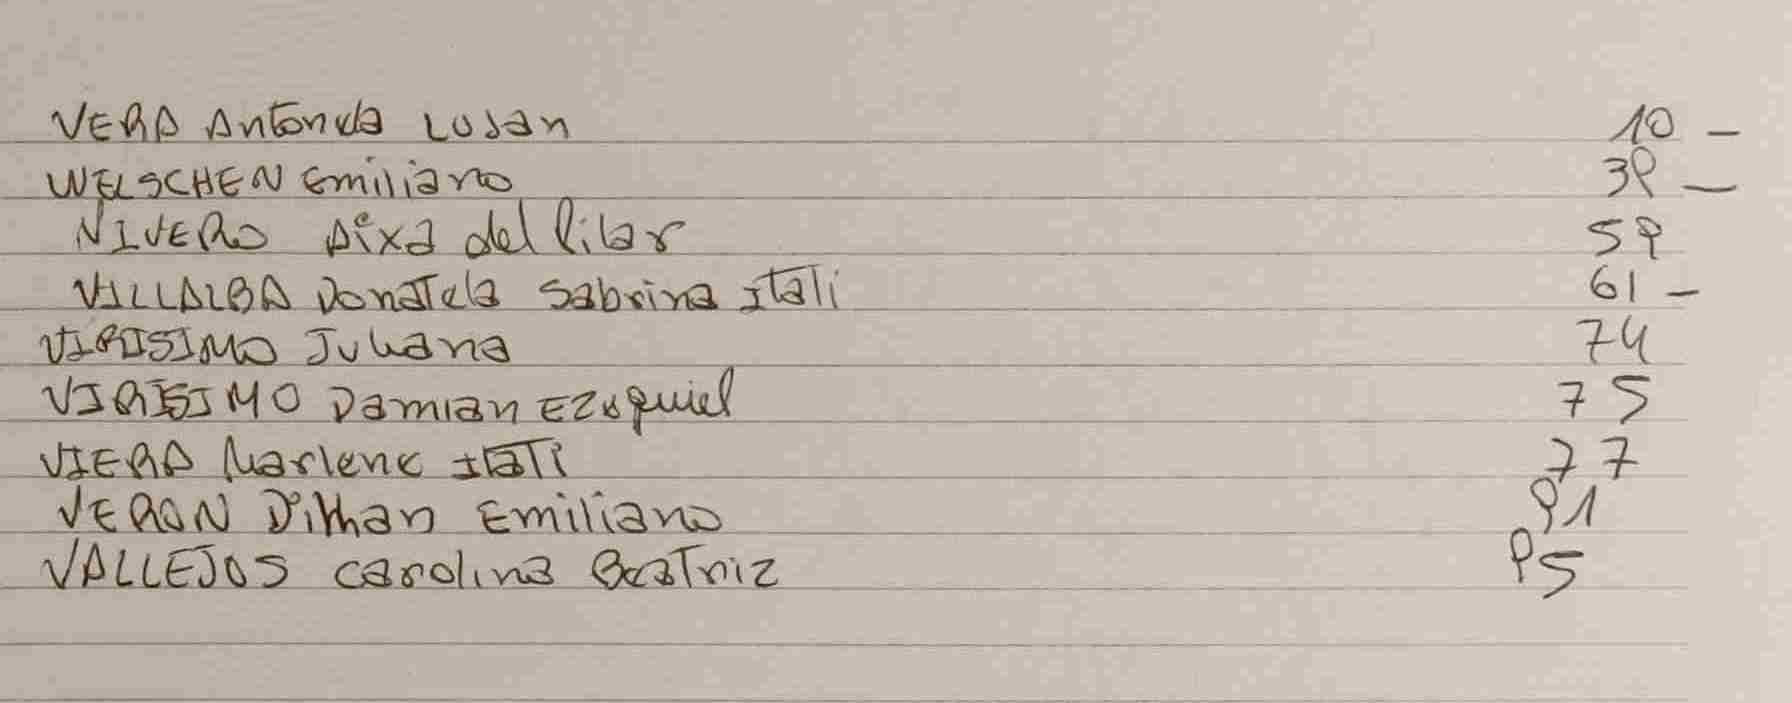 VERA Antonela Lujan 10 -
WELSCHEN Emiliano 39 -
NIVERO Aixa del Pilar 59
VILLALBA Donatela Sabrina Itati 61 -
VIRISIMO Juliana 74
VIRISIMO Damian Ezequiel 75
VIERA Marlene Itati 77
VERON Emiliano 91
VALLEJOS Carolina Beatriz 95